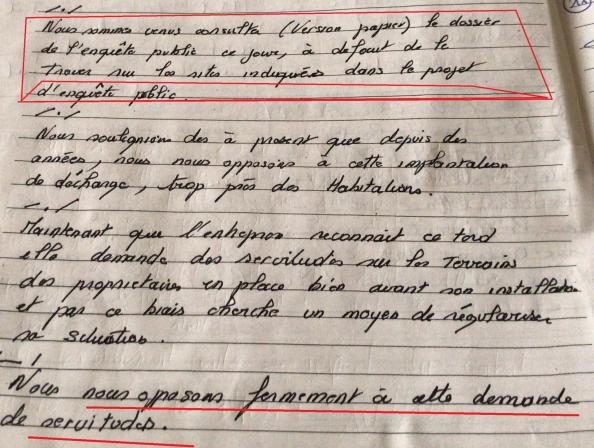 -/./
Nous sommes venus consulter (Version papier) le dossier
de l'enquête public ce jour, à defaut de le
trouver sur les sites indiqués dans le projet
d'enquête public.
-/./
Nous soulignons des à present que depuis des
années, nous nous opposons à cette implantation
de décharge, trop près des Habitations.
-/./
Maintenant que l'entreprise reconnait ce tord
elle demande des servitudes sur les Terrains
des proprietaires en place bien avant son installation
et par ce biais cherche un moyen de régulariser
sa situation.
Nous nous oposons fermement à cette demande
de servitudes.